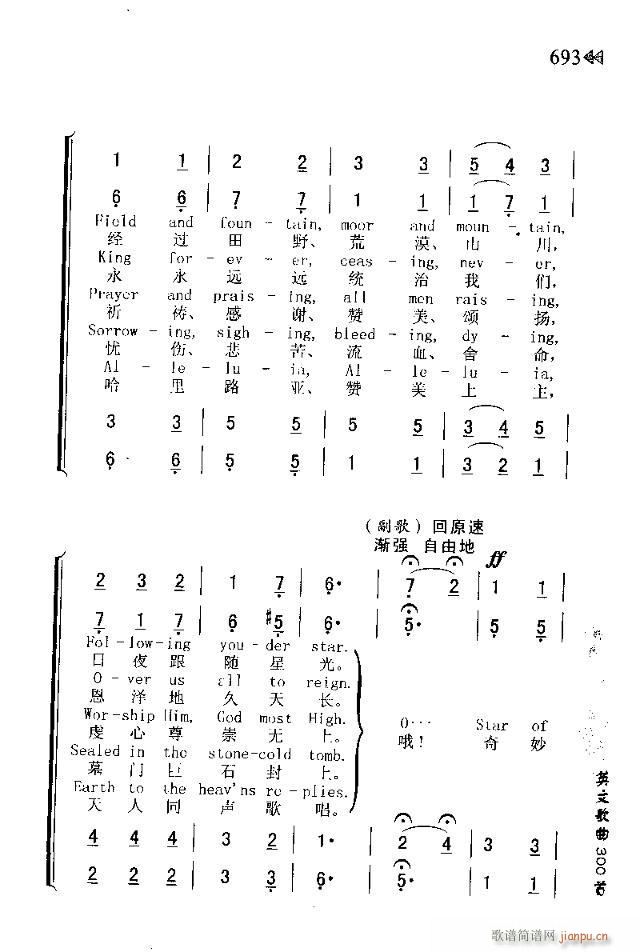 693
1 1 | 2 2 | 3 3 | 5 4 3 |
6 6 | 7 7 | 1 1 | 1 7 1 |
Field and foun - tain, moor and moun - tain,
经 过 田 野、荒 漠、山 川,
King for - ev - er, ceas - ing, nev - er,
永 永 远 远 统 治 我 们,
Prayer and prais - ing, all men rais - ing,
祈 祷、感 谢、赞 美、颂 扬,
Sorrow - ing, sigh - ing, bleed - ing, dy - ing,
忧 伤、悲 苦、流 血、舍 命,
Al - le - lu - ia, Al - le - lu - ia,
哈 里 路 亚、赞 美 上 主,
3 3 | 5 5 | 5 5 | 3 4 5 |
6 6 | 5 5 | 1 1 | 3 2 1 |
(副歌) 回原速
渐强 自由地 ff
2 3 2 | 1 7 | 6· | 7 2 | 1 1 |
7 1 7 | 6 #5 | 6· | 5· | 5 5 |
Fol - low - ing yon - der star.
日 夜 跟 随 星 光。
O - ver us all to reign.
恩 泽 地 久 天 长。
Wor - ship Him, God most High.
虔 心 尊 崇 无 上。
O… Star of
哦! 奇 妙
Sealed in the stone-cold tomb.
墓 门 巨 石 封 上。
Earth to the heav'ns re - plies.
天 人 同 声 歌 唱。
4 4 4 | 3 2 | 1· | 2 4 | 3 3 |
2 2 2 | 3 3 | 6· | 5· | 1 1 |
英文歌曲300首
歌谱简谱网
jianpu.cn